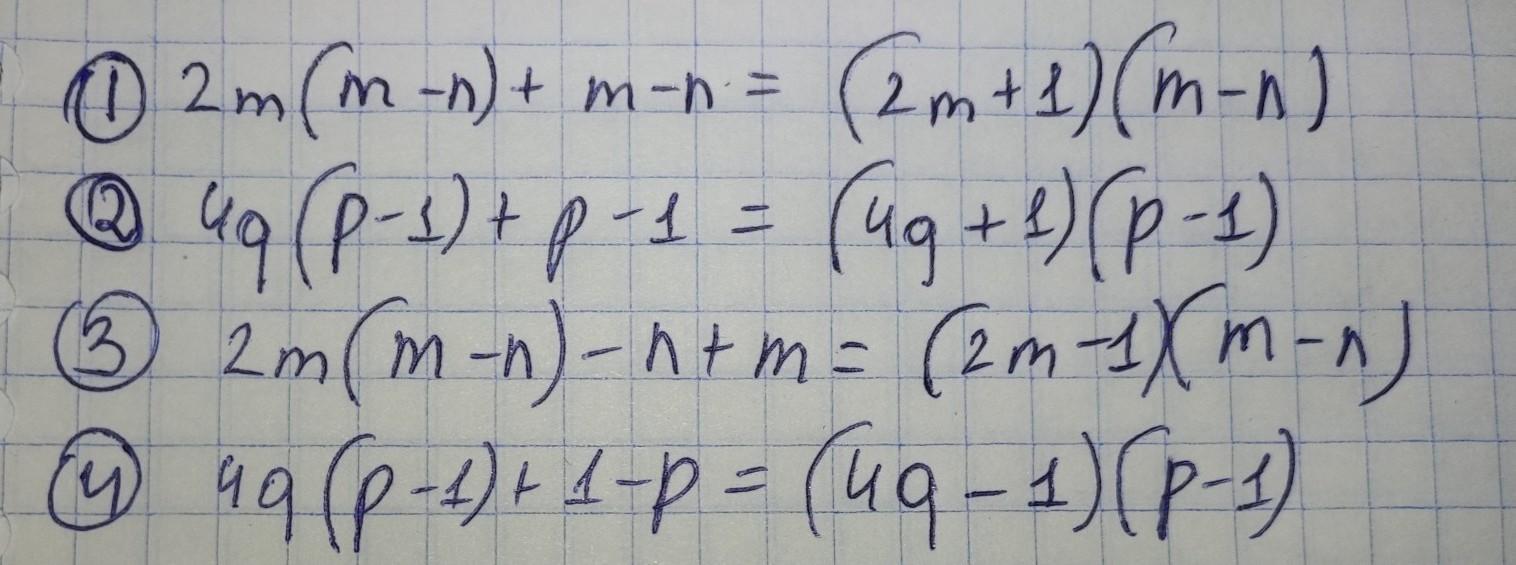 ① 2m(m-n)+ m-n = (2m+1)(m-n)
② 4q(p-1)+ p-1 = (4q+1)(p-1)
③ 2m(m-n)-n+m = (2m-1)(m-n)
④ 4q(p-1)+1-p = (4q-1)(p-1)